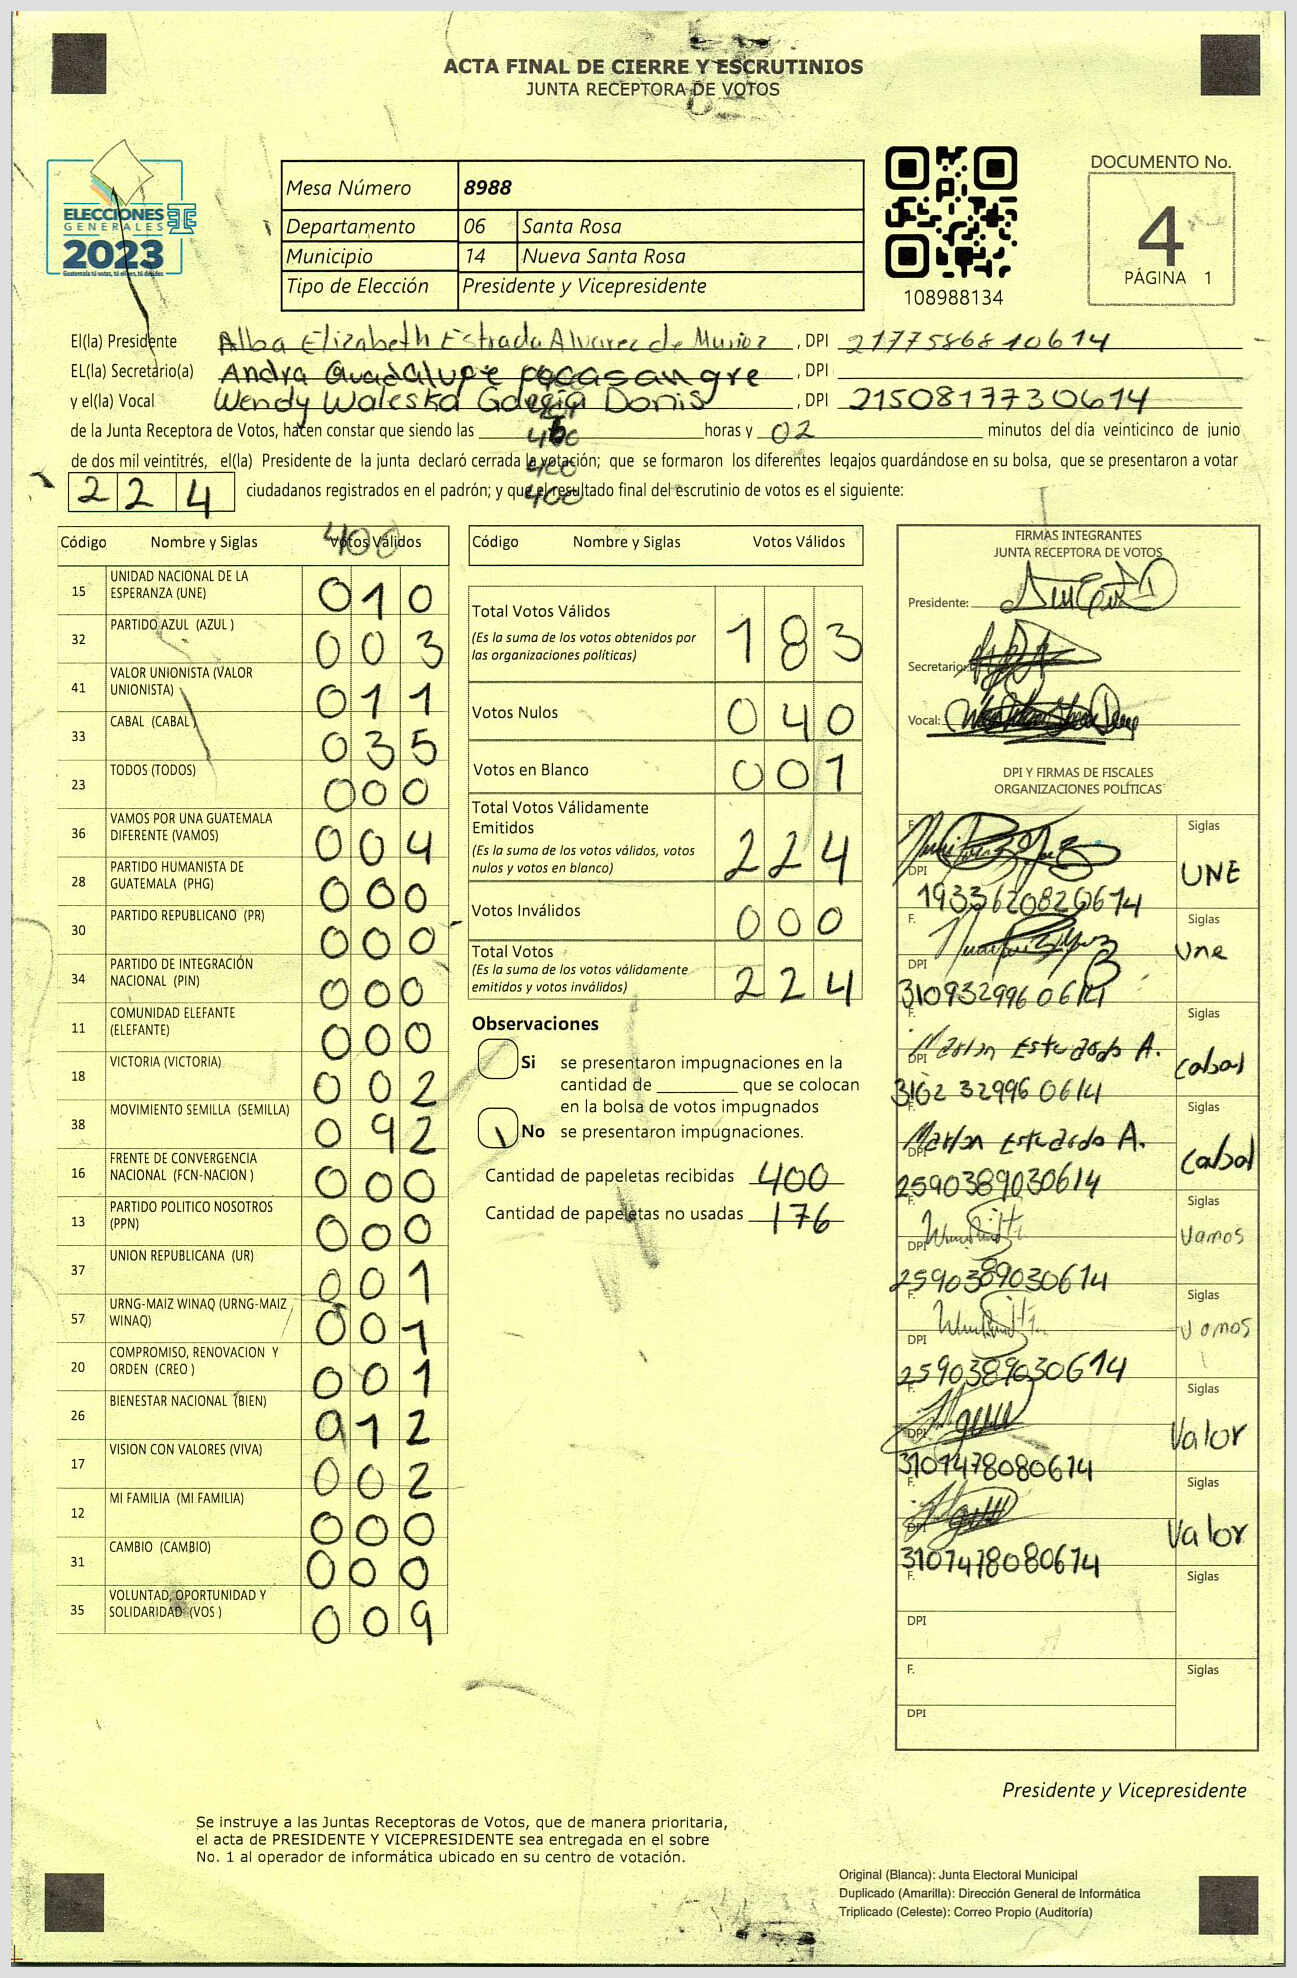 ACTA FINAL DE CIERRE Y ESCRUTINIOS
JUNTA RECEPTORA DE VOTOS
ELECCIONES
GENERALES
2023
Guatemala tú votas, tú eliges, tú decides
Mesa Número 8988
Departamento 06 Santa Rosa
Municipio 14 Nueva Santa Rosa
Tipo de Elección Presidente y Vicepresidente
108988134
DOCUMENTO No.
4
PÁGINA 1
El(la) Presidente Alba Elizabeth Estrada Alvarez de Muñoz , DPI 2177586810614
EL(la) Secretario(a) Andra Guadalupe pocasangre , DPI
y el(la) Vocal Wendy Waleska Garcia Donis , DPI 2150817730614
de la Junta Receptora de Votos, hacen constar que siendo las horas y 02 minutos del día veinticinco de junio
de dos mil veintitrés, el(la) Presidente de la junta declaró cerrada la votación; que se formaron los diferentes legajos guardándose en su bolsa, que se presentaron a votar
224 ciudadanos registrados en el padrón; y que el resultado final del escrutinio de votos es el siguiente:
400
400
400
400
Código Nombre y Siglas Votos Válidos
15 UNIDAD NACIONAL DE LA ESPERANZA (UNE) 010
32 PARTIDO AZUL (AZUL ) 003
41 VALOR UNIONISTA (VALOR UNIONISTA) 011
33 CABAL (CABAL) 035
23 TODOS (TODOS) 000
36 VAMOS POR UNA GUATEMALA DIFERENTE (VAMOS) 004
28 PARTIDO HUMANISTA DE GUATEMALA (PHG) 000
30 PARTIDO REPUBLICANO (PR) 000
34 PARTIDO DE INTEGRACIÓN NACIONAL (PIN) 000
11 COMUNIDAD ELEFANTE (ELEFANTE) 000
18 VICTORIA (VICTORIA) 002
38 MOVIMIENTO SEMILLA (SEMILLA) 092
16 FRENTE DE CONVERGENCIA NACIONAL (FCN-NACION ) 000
13 PARTIDO POLITICO NOSOTROS (PPN) 000
37 UNION REPUBLICANA (UR) 001
57 URNG-MAIZ WINAQ (URNG-MAIZ WINAQ) 001
20 COMPROMISO, RENOVACION Y ORDEN (CREO ) 001
26 BIENESTAR NACIONAL (BIEN) 012
17 VISION CON VALORES (VIVA) 002
12 MI FAMILIA (MI FAMILIA) 000
31 CAMBIO (CAMBIO) 000
35 VOLUNTAD, OPORTUNIDAD Y SOLIDARIDAD (VOS ) 009
Código Nombre y Siglas Votos Válidos
Total Votos Válidos 183
(Es la suma de los votos obtenidos por
las organizaciones políticas)
Votos Nulos 040
Votos en Blanco 001
Total Votos Válidamente
Emitidos 224
(Es la suma de los votos válidos, votos
nulos y votos en blanco)
Votos Inválidos 000
Total Votos 224
(Es la suma de los votos válidamente
emitidos y votos inválidos)
Observaciones
Si se presentaron impugnaciones en la
cantidad de ________ que se colocan
en la bolsa de votos impugnados
No se presentaron impugnaciones.
Cantidad de papeletas recibidas 400
Cantidad de papeletas no usadas 176
FIRMAS INTEGRANTES
JUNTA RECEPTORA DE VOTOS
Presidente:
Secretario:
Vocal:
DPI Y FIRMAS DE FISCALES
ORGANIZACIONES POLÍTICAS
F. Siglas
DPI 1933620820614 UNE
F. Siglas
DPI 3109329960614 Une
F. Marlon Estuardo A. Siglas
DPI 3102329960614 Cabal
F. Marlon Estuardo A. Siglas
DPI 2590389030614 Cabal
F. Siglas
DPI 2590389030614 Vamos
F. Siglas
DPI 2590389030614 Vamos
F. Siglas
DPI 3107478080614 Valor
F. Siglas
DPI 3107478080614 Valor
F. Siglas
DPI
F. Siglas
DPI
Presidente y Vicepresidente
Se instruye a las Juntas Receptoras de Votos, que de manera prioritaria,
el acta de PRESIDENTE Y VICEPRESIDENTE sea entregada en el sobre
No. 1 al operador de informática ubicado en su centro de votación.
Original (Blanca): Junta Electoral Municipal
Duplicado (Amarilla): Dirección General de Informática
Triplicado (Celeste): Correo Propio (Auditoría)